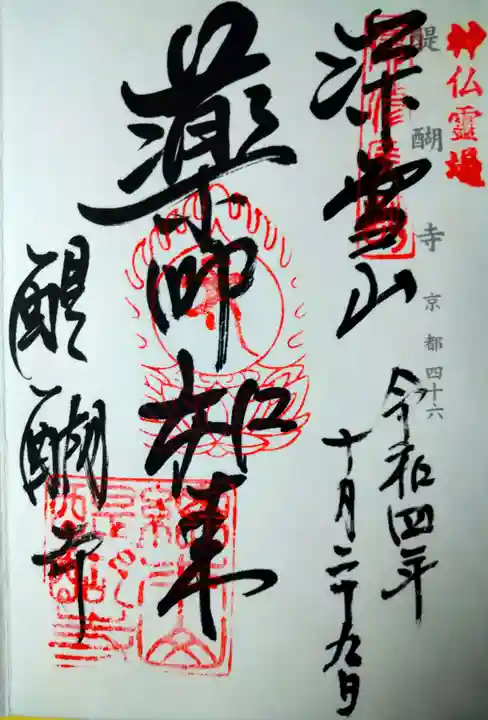 神仏霊場
醍醐寺 京都四十六
令和四年
十月二十九日
深雪山
薬師如来
醍醐寺